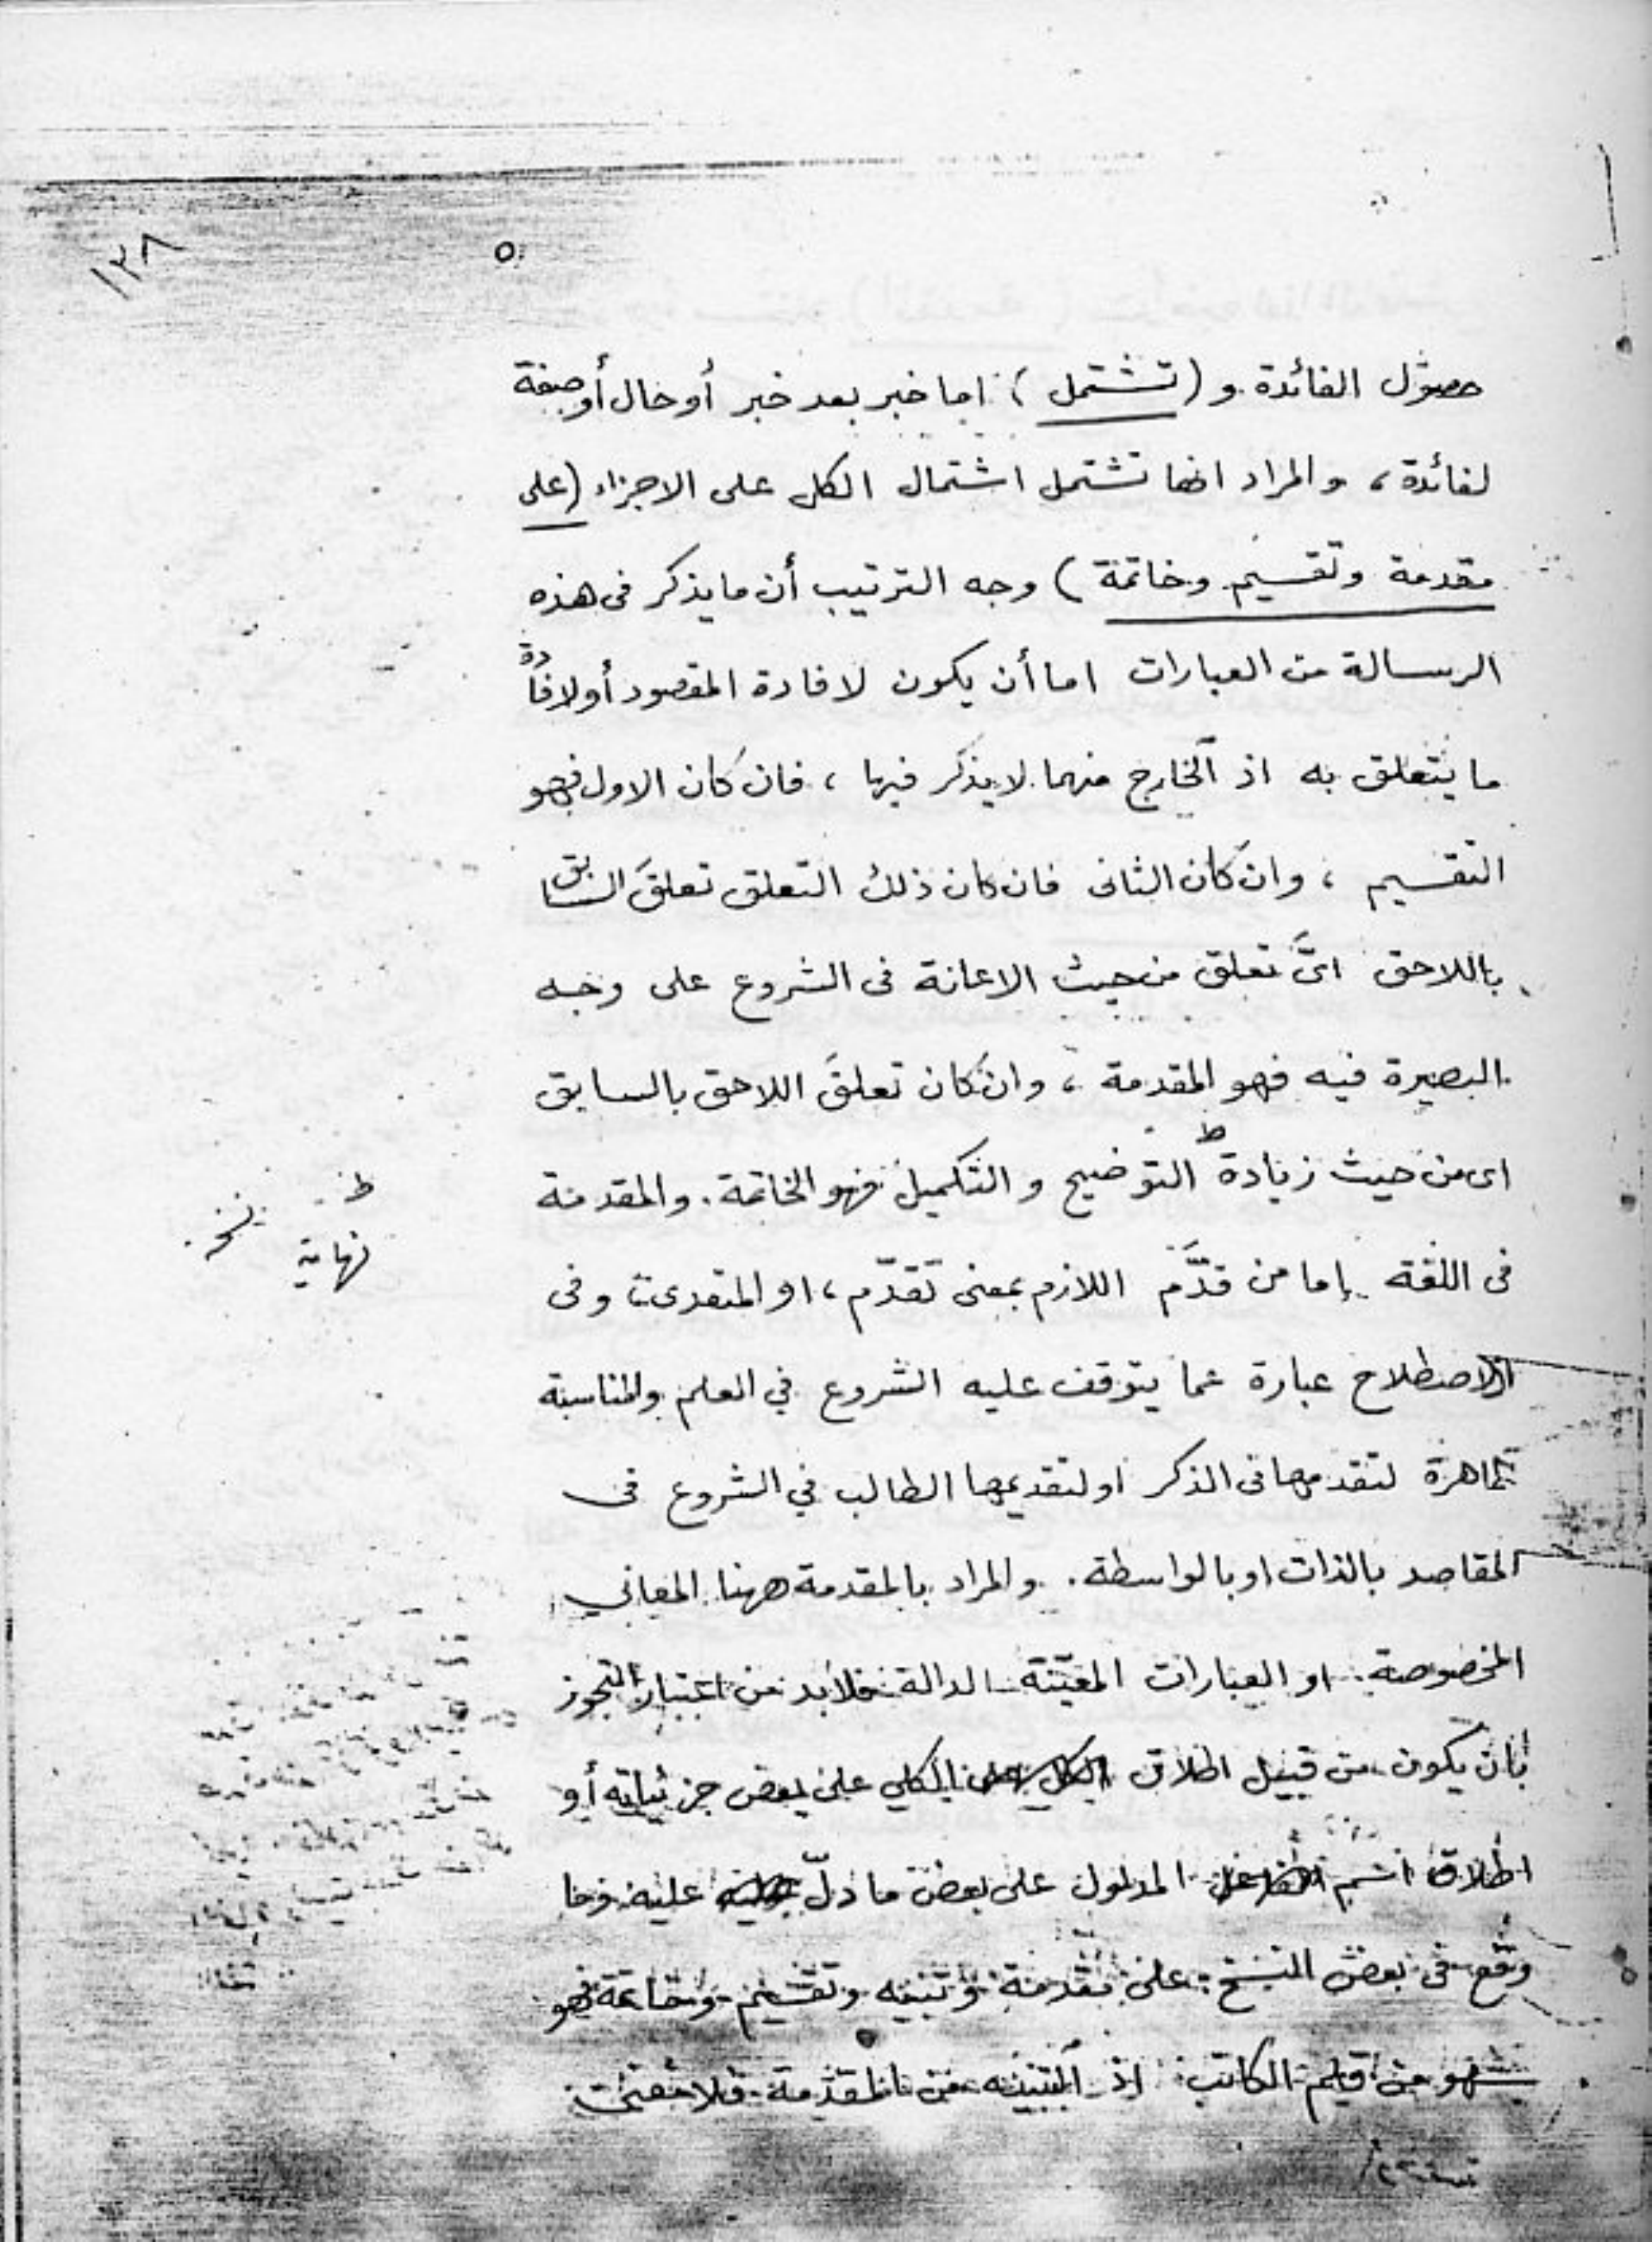 ١٣٨
٥
حصول الفائدة و (تشتمل) اما خبر بعد خبر أو حال أو صفة
لفائدة، والمراد انها تشتمل اشتمال الكل على الاجزاء (على
مقدمة وتقسيم وخاتمة) وجه الترتيب أن ما يذكر فى هذه
الرسالة من العبارات اما أن يكون لافادة المقصود أو لافادة
ما يتعلق به اذ الخارج منهما لا يذكر فيها، فان كان الاول فهو
التقسيم، وان كان الثانى فان كان ذلك التعلق تعلقَ السابق
باللاحق اىَّ تعلق من حيث الاعانة فى الشروع على وجه
البصيرة فيه فهو المقدمة، وان كان تعلقَ اللاحق بالسابق
اى من حيث زيادة ط التوضيح و التكميل فهو الخاتمة. والمقدمة
ط
نهاية نسخه
فى اللغة إما من قدَّم اللازم بمعنى تَقدّم، او المتعدى وفى
الاصطلاح عبارة عما يتوقف عليه الشروع في العلم والمناسبة
ظاهرة لتقدمها فى الذكر او لتقديمها الطالب في الشروع فى
المقاصد بالذات او بالواسطة. والمراد بالمقدمة ههنا المعاني
المخصوصة او العبارات المعيّنة الدالة فلابد من اعتبار التجوز
بان يكون من قبيل اطلاق الكلي على بعض جزئياته أو
اطلاق اسم المدلول على بعض ما دلّ عليه وما
وقع فى بعض النسخ على مقدمة وتنبيه وتقسيم وخاتمة فهو
سهو من قلم الكاتب اذ التنبيه من المقدمة فلا معنى